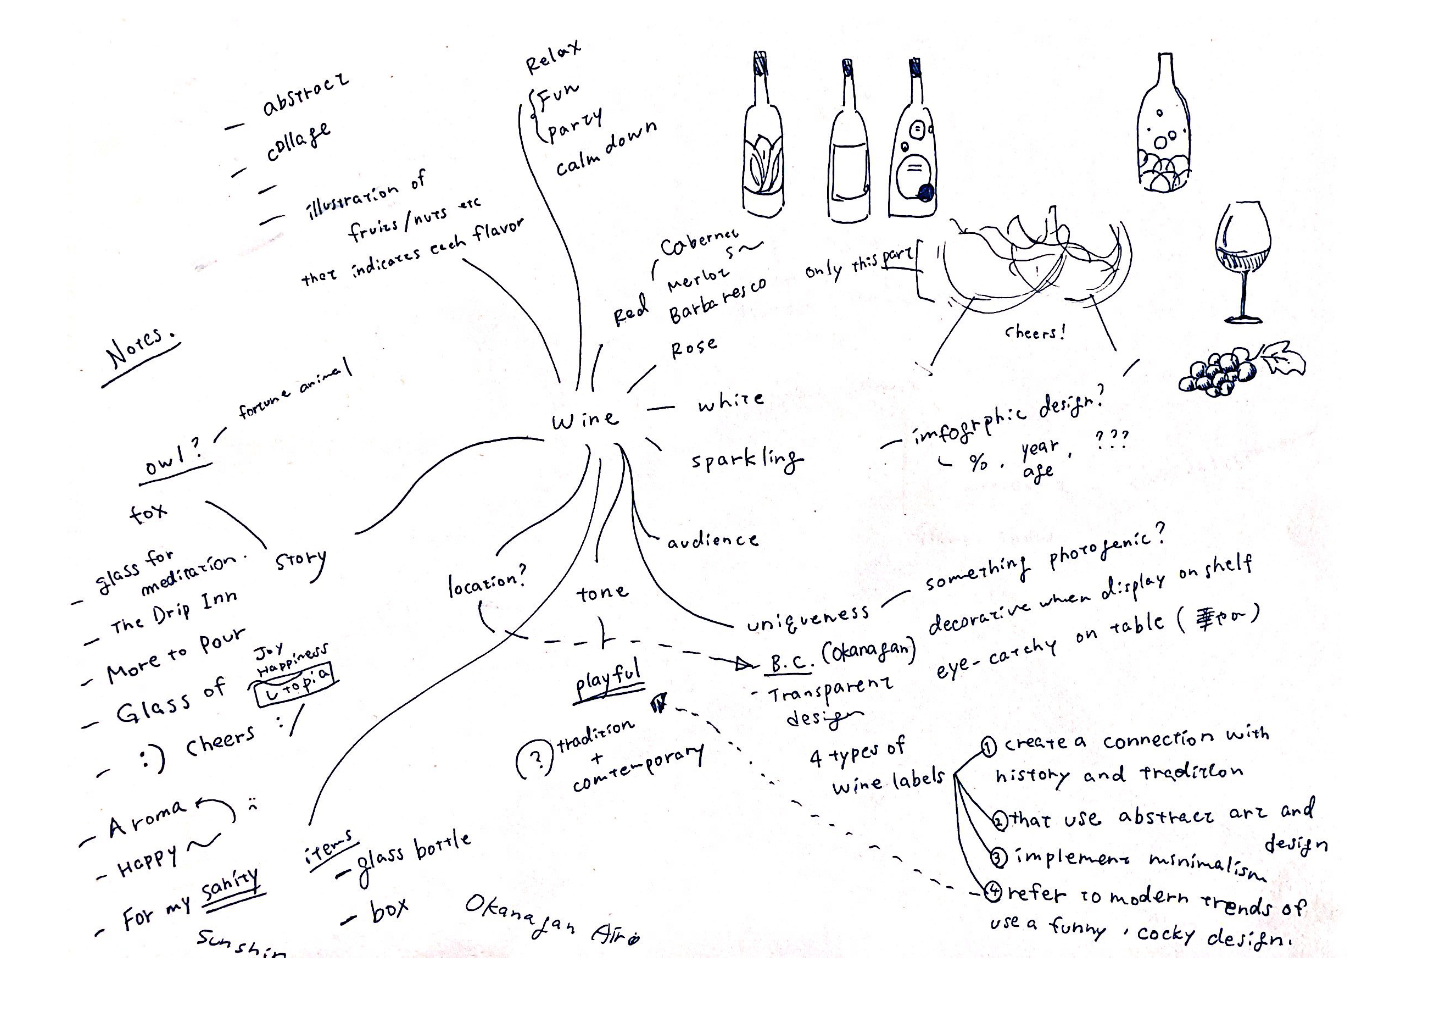 Notes.
— abstract
— collage
—
— illustration of
fruits/nuts etc
that indicates each flavor
Relax
Fun
party
calm down
Red
Cabernet
S~
Merlot
Barbaresco
Rose
white
sparkling
Wine
only this part
cheers!
— imfogrphic design?
%. year, ???
age
owl?
fortune animal
fox
story
— glass for
meditation.
— The Drip Inn
— More to Pour
— Glass of
Joy
Happiness
utopia
— :) cheers :/
— Aroma
— Happy ~
— For my sanity
sunshin
location?
tone
playful
(?) tradition
+
comtemporary
audience
uniqueness
something photogenic?
decorative when display on shelf
eye-catchy on table
B.C. (Okanagan)
- Transparent
design
4 types of
wine labels
① create a connection with
history and tradition
② that use abstract art and
design
③ implement minimalism
④ refer to modern trends of
use a funny, cocky design.
items
- glass bottle
- box
Okanagan